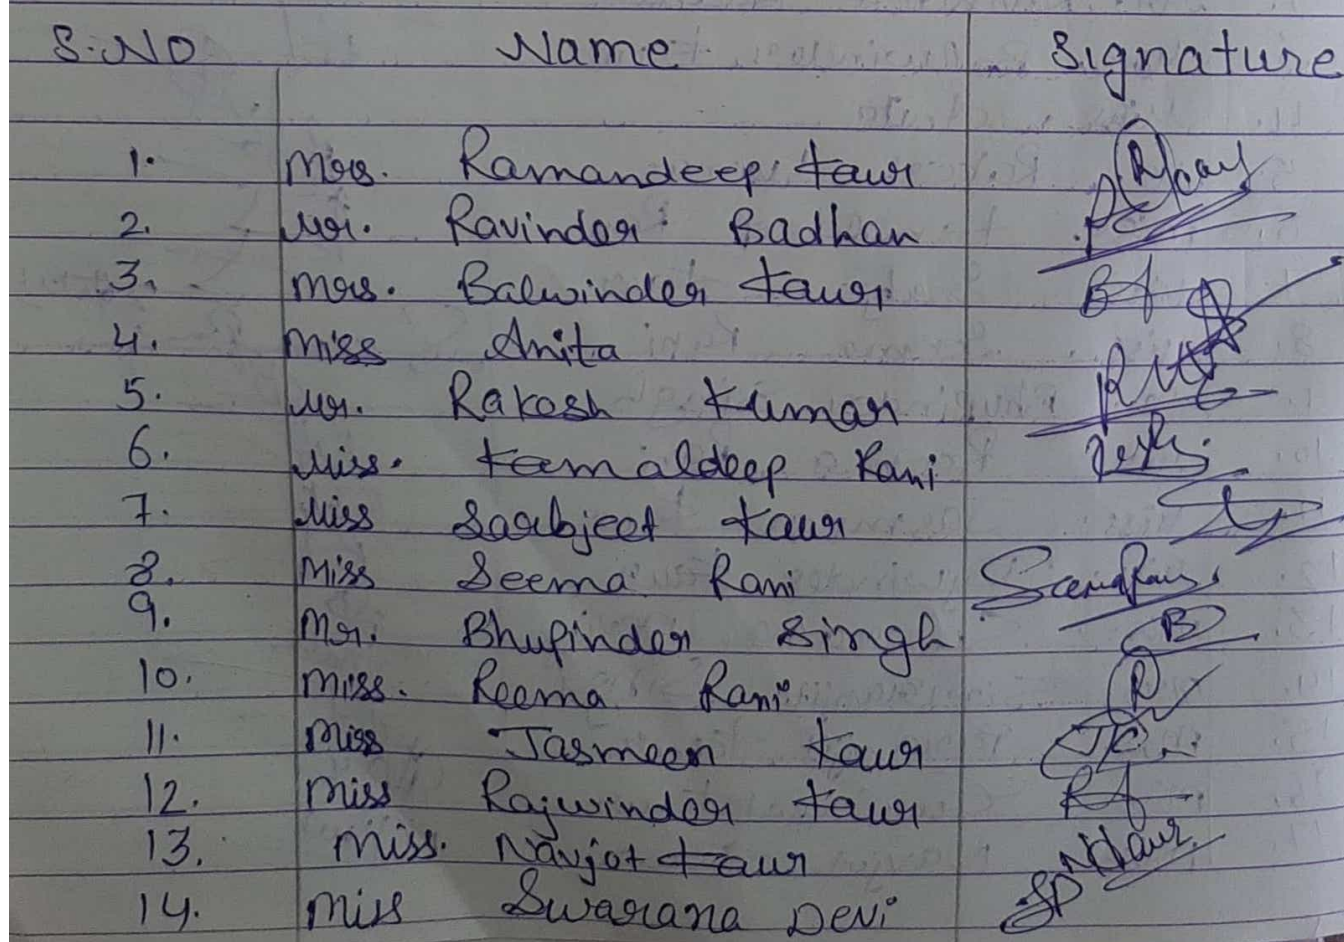 S.No Name Signature
1. Mrs. Ramandeep Kaur
2. Mr. Ravinder Badhan
3. Mrs. Balwinder Kaur
4. Miss Anita
5. Mr. Rakesh Kumar
6. Miss. Kamaldeep Rani
7. Miss Sarbjeet Kaur
8. Miss Seema Rani Seema Rani
9. Mr. Bhupinder Singh B
10. Miss. Reema Rani R
11. Miss Jasmeen Kaur
12. Miss Rajwinder Kaur
13. Miss. Navjot Kaur NKaur
14. Miss Swarana Devi SD